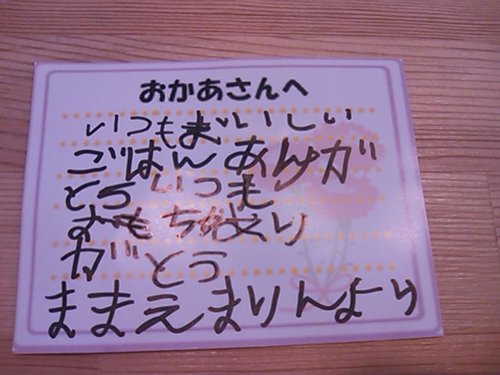 おかあさんへ
いつもおいしい
ごはんありが
とういつも
おもちゃあり
がとう
ままえまりんより